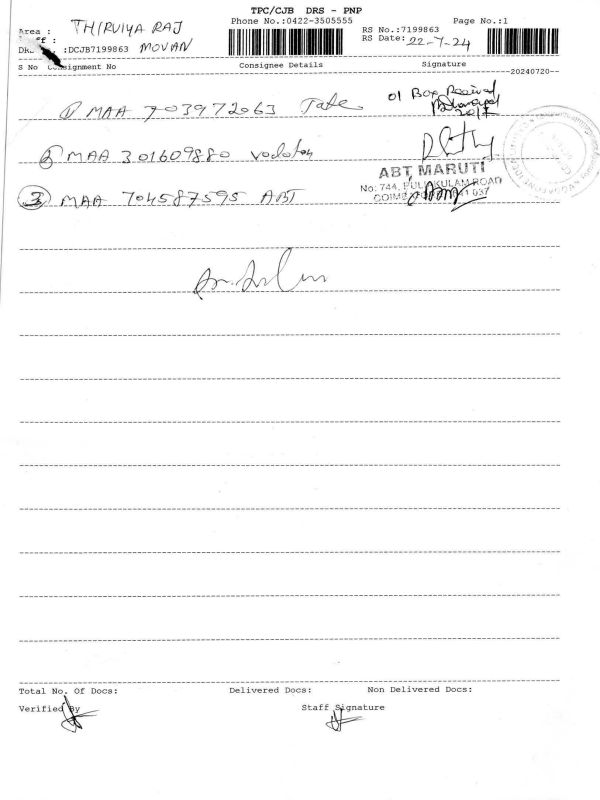 TPC/CJB DRS - PNP
Phone No.:0422-3505555 Page No.:1
Area : THIRVIYA RAJ
RS No.:7199863
:DCJB7199863 MOVAN
RS Date: 22-7-24
S No Consignment No Consignee Details Signature
--20240720--
1 MAA 703972063 Tate 01 Box Received
2 MAA 301609880
ABT MARUTI
No: 744, PULIAKULAM ROAD
3 MAA 704587595 ABT
Total No. Of Docs: Delivered Docs: Non Delivered Docs:
Verified By Staff Signature